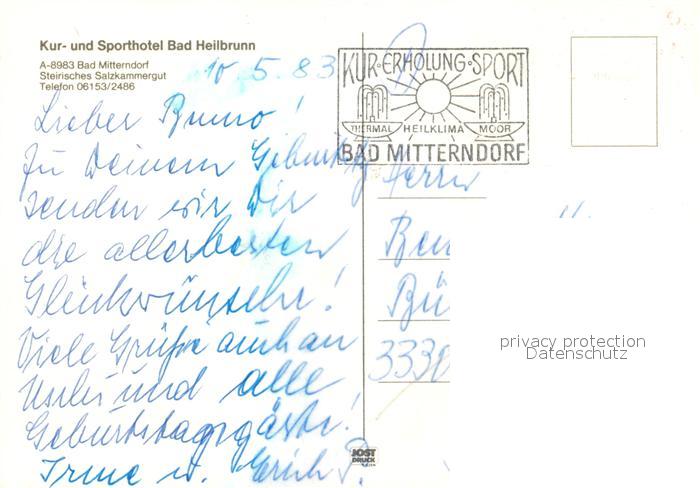 Kur- und Sporthotel Bad Heilbrunn
A-8983 Bad Mitterndorf
Steirisches Salzkammergut
Telefon 06153/2486
10.5.83
KUR·ERHOLUNG·SPORT
THERMAL HEILKLIMA MOOR
BAD MITTERNDORF
Lieber Bruno!
Zu Deinem Geburtstg
senden wir Dir
die allerbesten
Glückwünsche!
Viele Grüße auch an
Uschi und alle
Geburtstagsgäste!
Irme u. Erich P.
Herrn
Bü
3330
privacy protection
Datenschutz
JOST
DRUCK